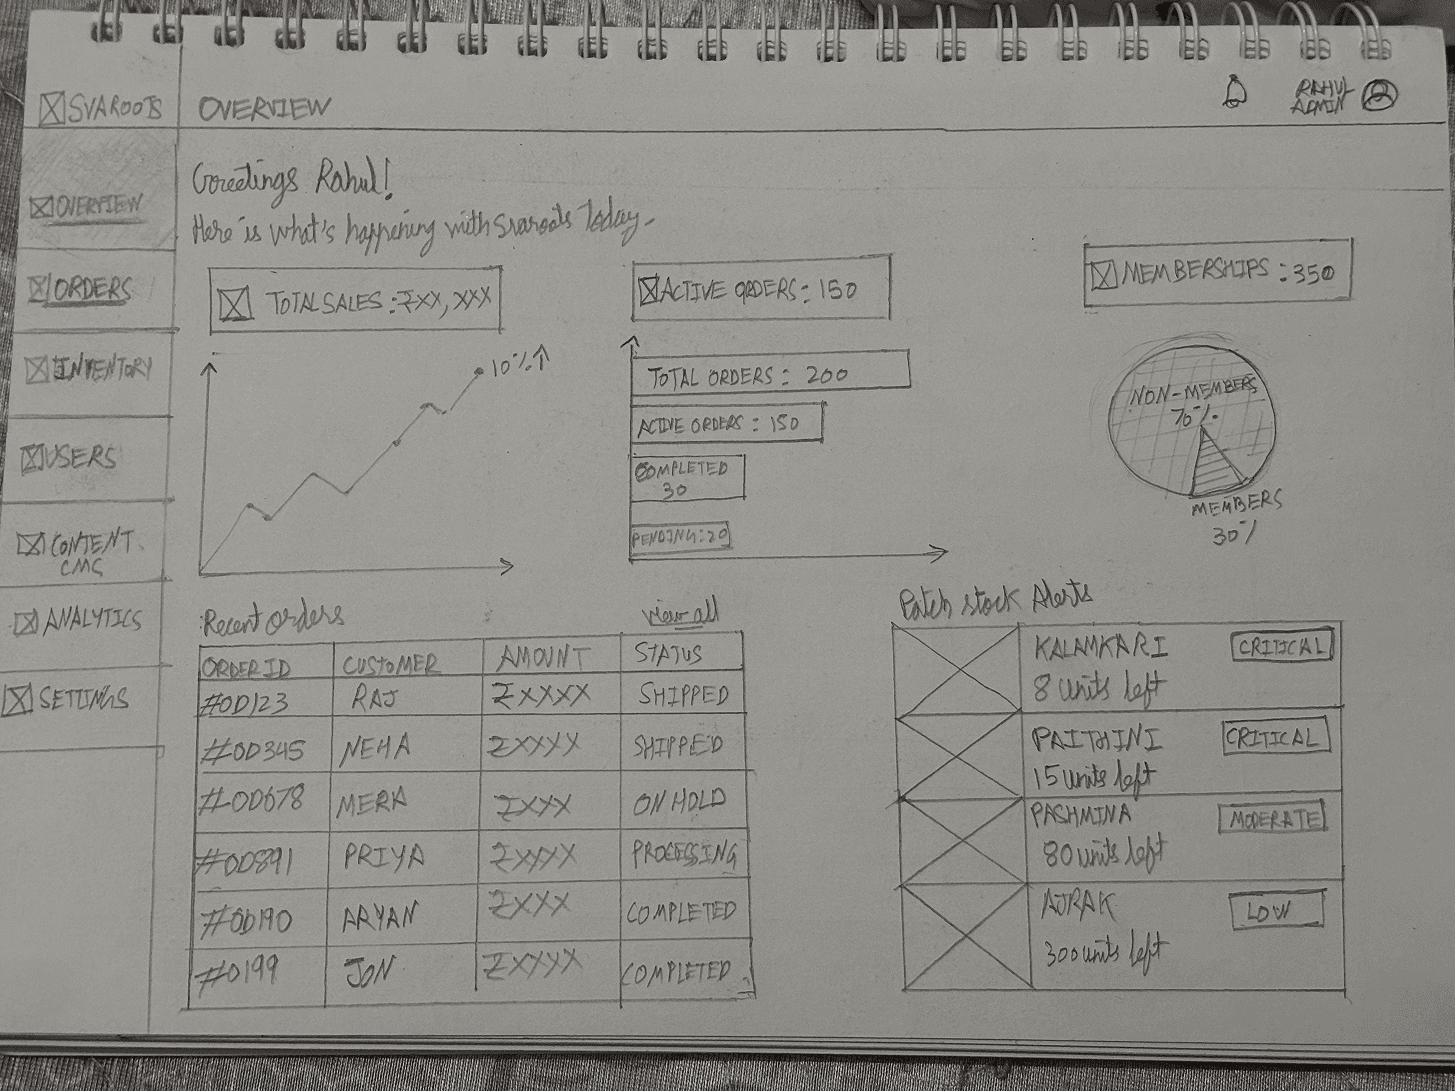 SVAROOTS
OVERVIEW
RAHUL
ADMIN
OVERVIEW
ORDERS
INVENTORY
USERS
CONTENT
CMS
ANALYTICS
SETTINGS
Greetings Rahul!
Here is what's happening with Svaroots Today.
TOTAL SALES : ₹XX, XXX
10% ↑
ACTIVE ORDERS : 150
TOTAL ORDERS : 200
ACTIVE ORDERS : 150
COMPLETED
30
PENDING : 20
MEMBERSHIPS : 350
NON-MEMBERS
70%
MEMBERS
30%
Recent orders view all
ORDER ID CUSTOMER AMOUNT STATUS
#OD123 RAJ ₹XXXX SHIPPED
#OD345 NEHA ₹XXXX SHIPPED
#OD678 MERA ₹XXX ON HOLD
#OD891 PRIYA ₹XXXX PROCESSING
#OD190 ARYAN ₹XXX COMPLETED
#O199 JON ₹XXXX COMPLETED
Patch stock Alerts
KALAMKARI CRITICAL
8 units left
PAITHINI CRITICAL
15 units left
PASHMINA MODERATE
80 units left
AJRAK LOW
300 units left